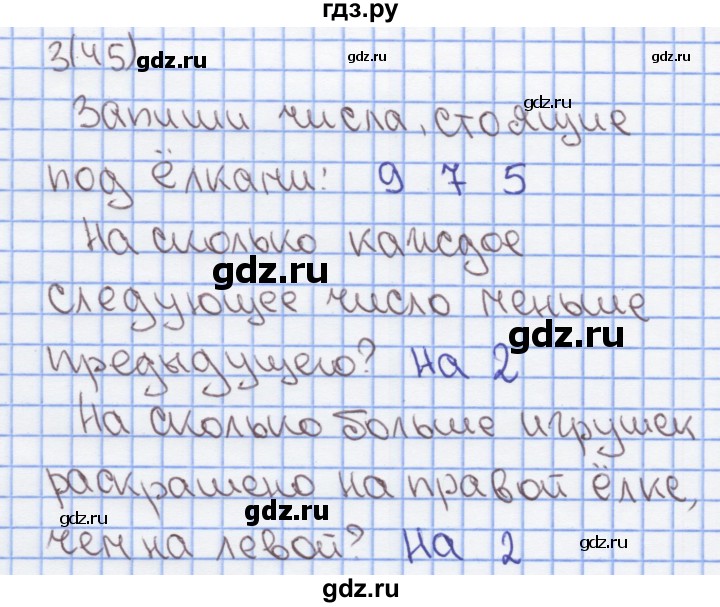 гдз.ру
3(45) gdz.ru gdz.ru
gdz.ru
Запиши числа, стоящие
под ёлками: 9 7 5
На сколько каждое
gdz.ru
следующее число меньше
gdz.ru
предыдущего? На 2
На сколько больше игрушек
раскрашено на правой ёлке,
gdz.ru gdz.ru
чем на левой? На 2 gdz.ru
gdz.ru